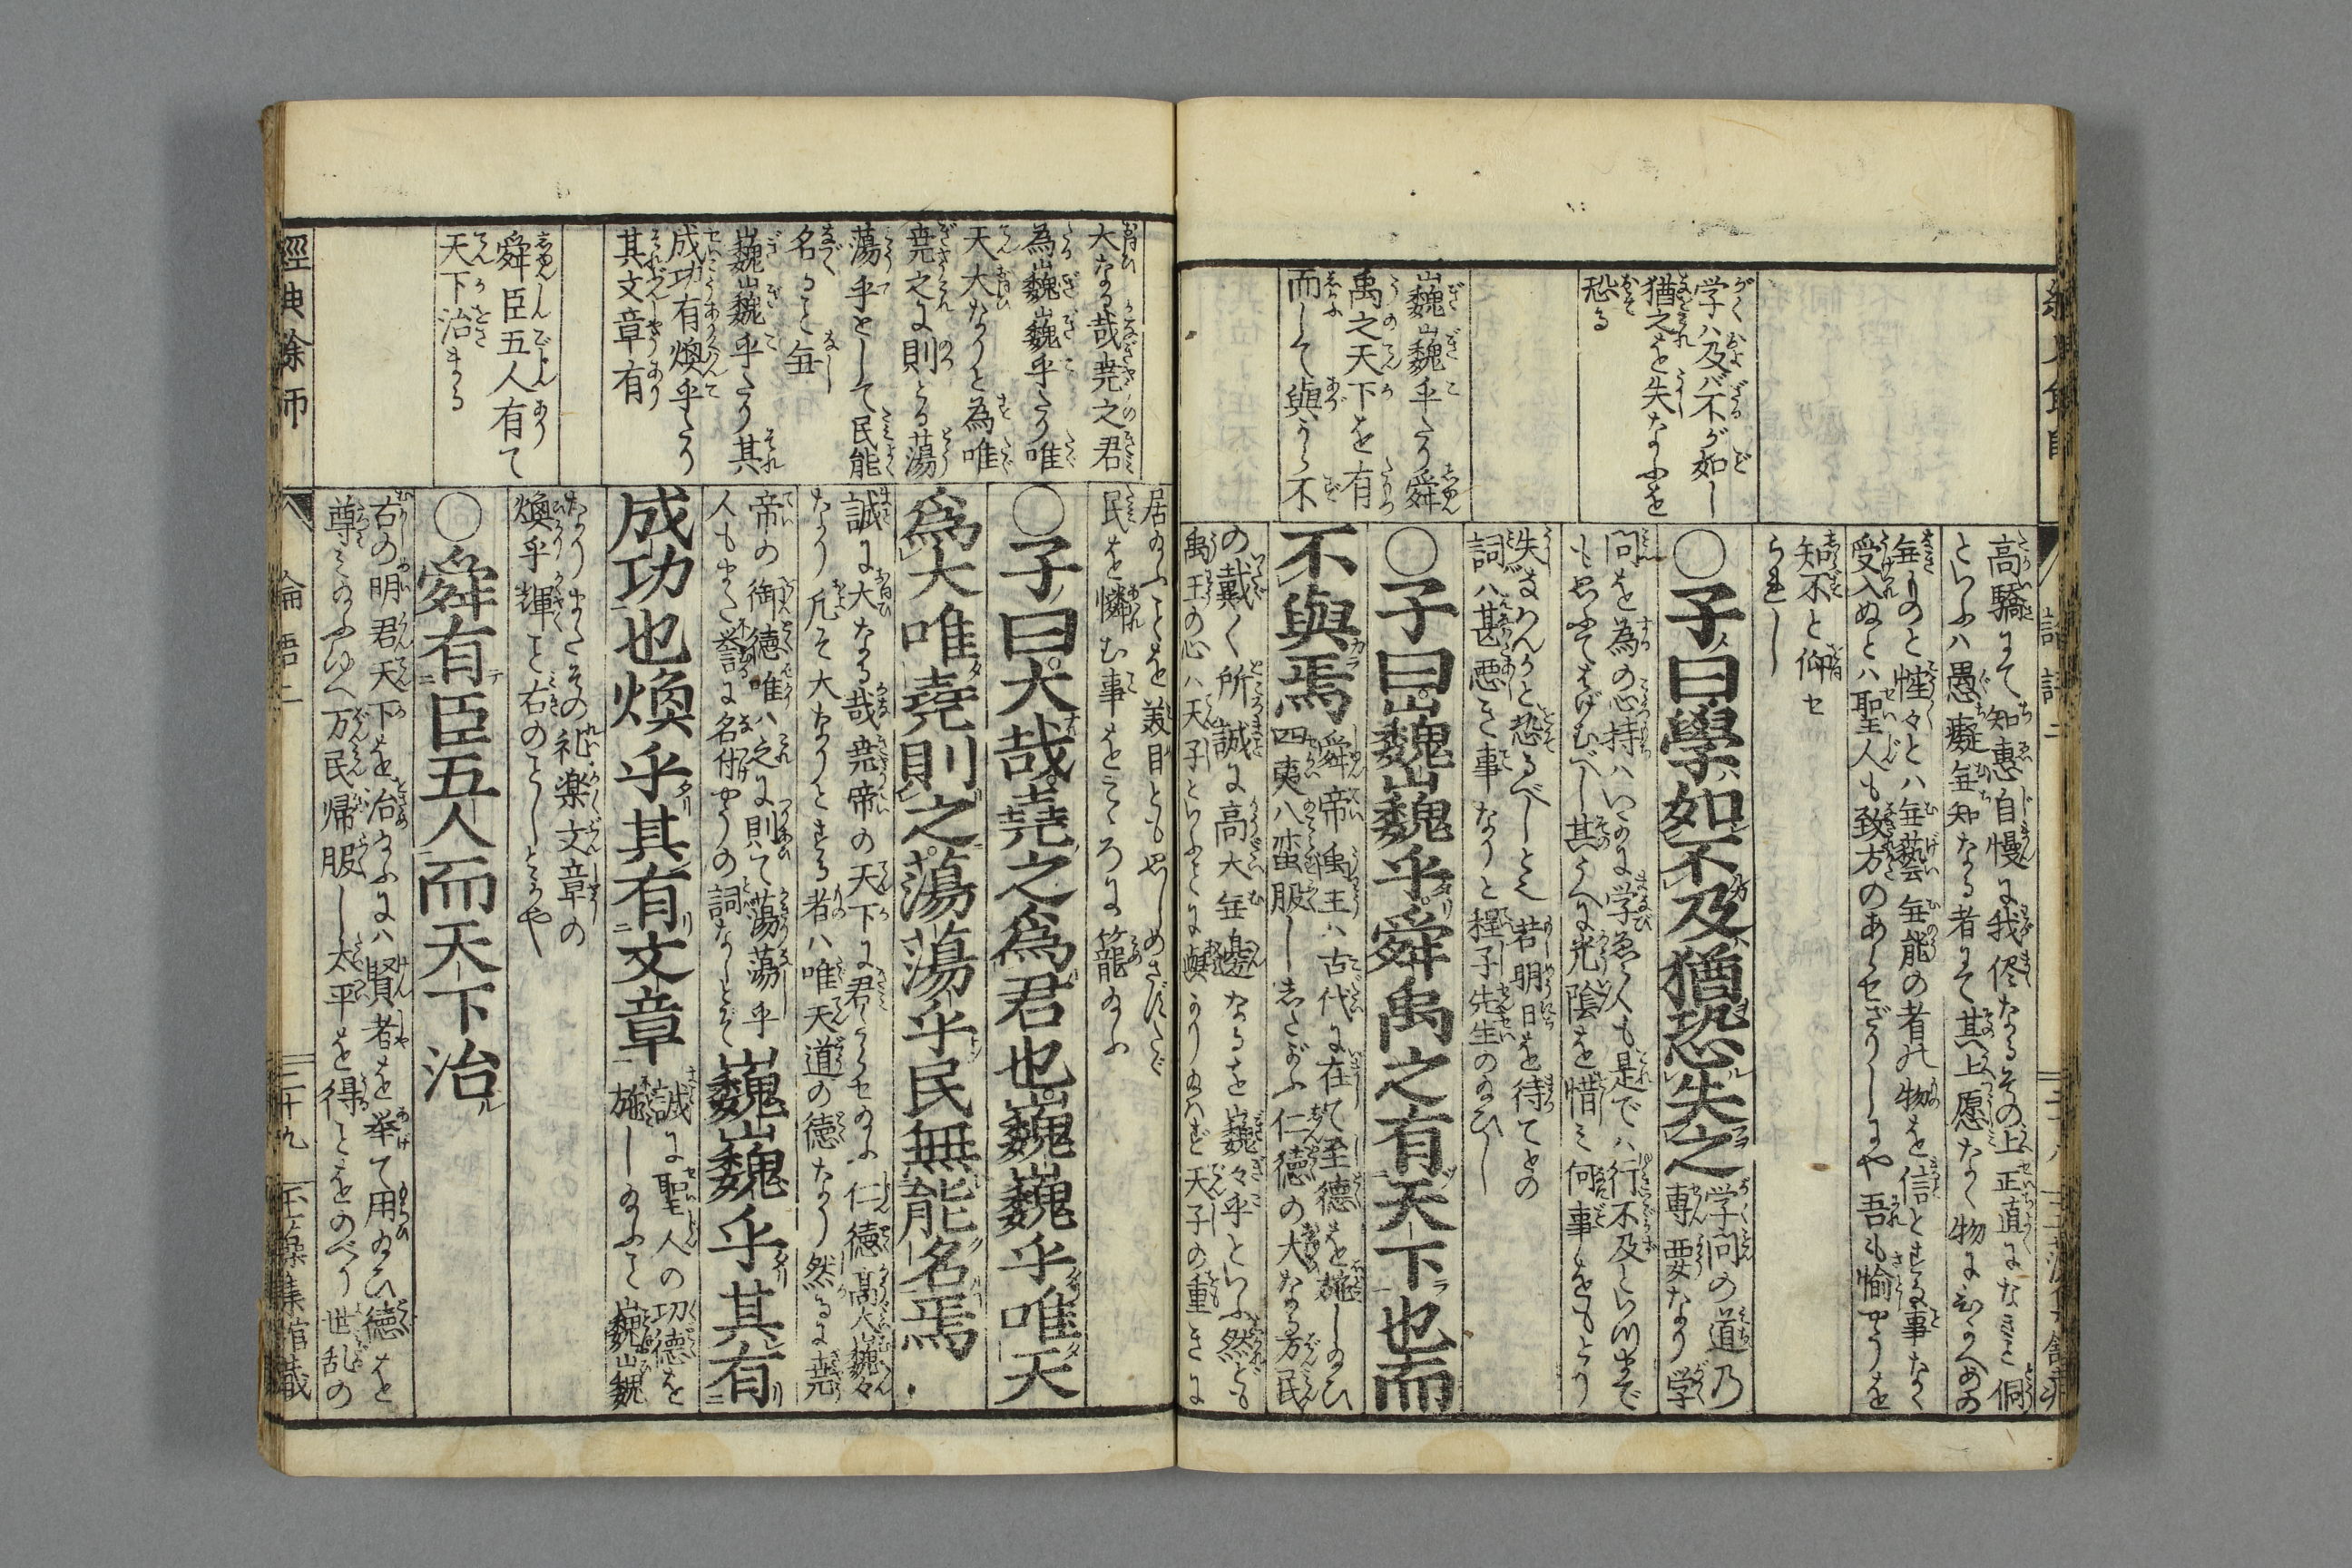 学ハ及バ不ガ如し
猶之を失なふを
恐る
巍巍乎たり舜
禹之天下を有
而して與から不
高驕にて知恵自慢に我侭なるその上正直になきミ侗
といふハ愚癡無知なる者にて其上愿なく物に
無ものと悾々とハ無藝無能の者の物を信とする事なく
受入ぬとハ聖人も致方のあらせざりしにや吾も愉やうを
知不と仰セ
られし
〇子曰學如不及猶恐失之
学問の道乃
専要なり学
問を為の心持ハいかに学ゑる人も是でハ行不及といふまで
もゑふてはげむべし其うへに光陰を惜ミ何事をもとり
失なハんかと恐るべしとぞ若明日を待てとの
詞ハ甚悪き事なりと程子先生のゐひし
〇子曰巍巍乎舜禹之有天下也而
不與焉
舜帝禹王ハ古代に在て至徳を施しゐひ
四夷八蛮服ししたがふ仁徳の大なる万民
の戴く所誠に高大無邊なるを巍々乎といふ然ども
禹王の心ハ天子といふとに與かりゐハず天子の重きに
三十八
大なる哉尭之君
為巍巍乎たり唯
天大なりと為唯
尭之に則とる蕩
蕩乎として民能
名づくること無し
巍巍乎たり其
成功有煥乎たり
其文章有
舜臣五人有て
天下治まる
居ゐふことを美目ともせしめさずたゞ
民を憐む事をこころに籠ゐふ
〇子曰大哉堯之爲君也巍巍乎唯天
爲大唯堯則之蕩蕩乎民無能名焉
誠に大なる哉尭帝の天下に君たらセゐふ仁徳高大巍々
たり凡そ大なりとする者ハ唯天道の徳なり然るに尭
帝の御徳唯ハ之に則て蕩蕩乎
人もまた誉に名付やうの詞なしとぞ
巍巍乎其有
成功也煥乎其有文章
誠に聖人の功徳を
施しゐふこと巍巍
たりまたその礼楽文章の
煥乎輝こと右のごとしとかや
〇舜有臣五人而天下治
右の明君天下を治ゐふにハ賢者を挙て用ゐひ徳を
尊ミゐふゆへ万民帰服し太平を得ことをのべり世乱の
經典餘師
論語二
三十九